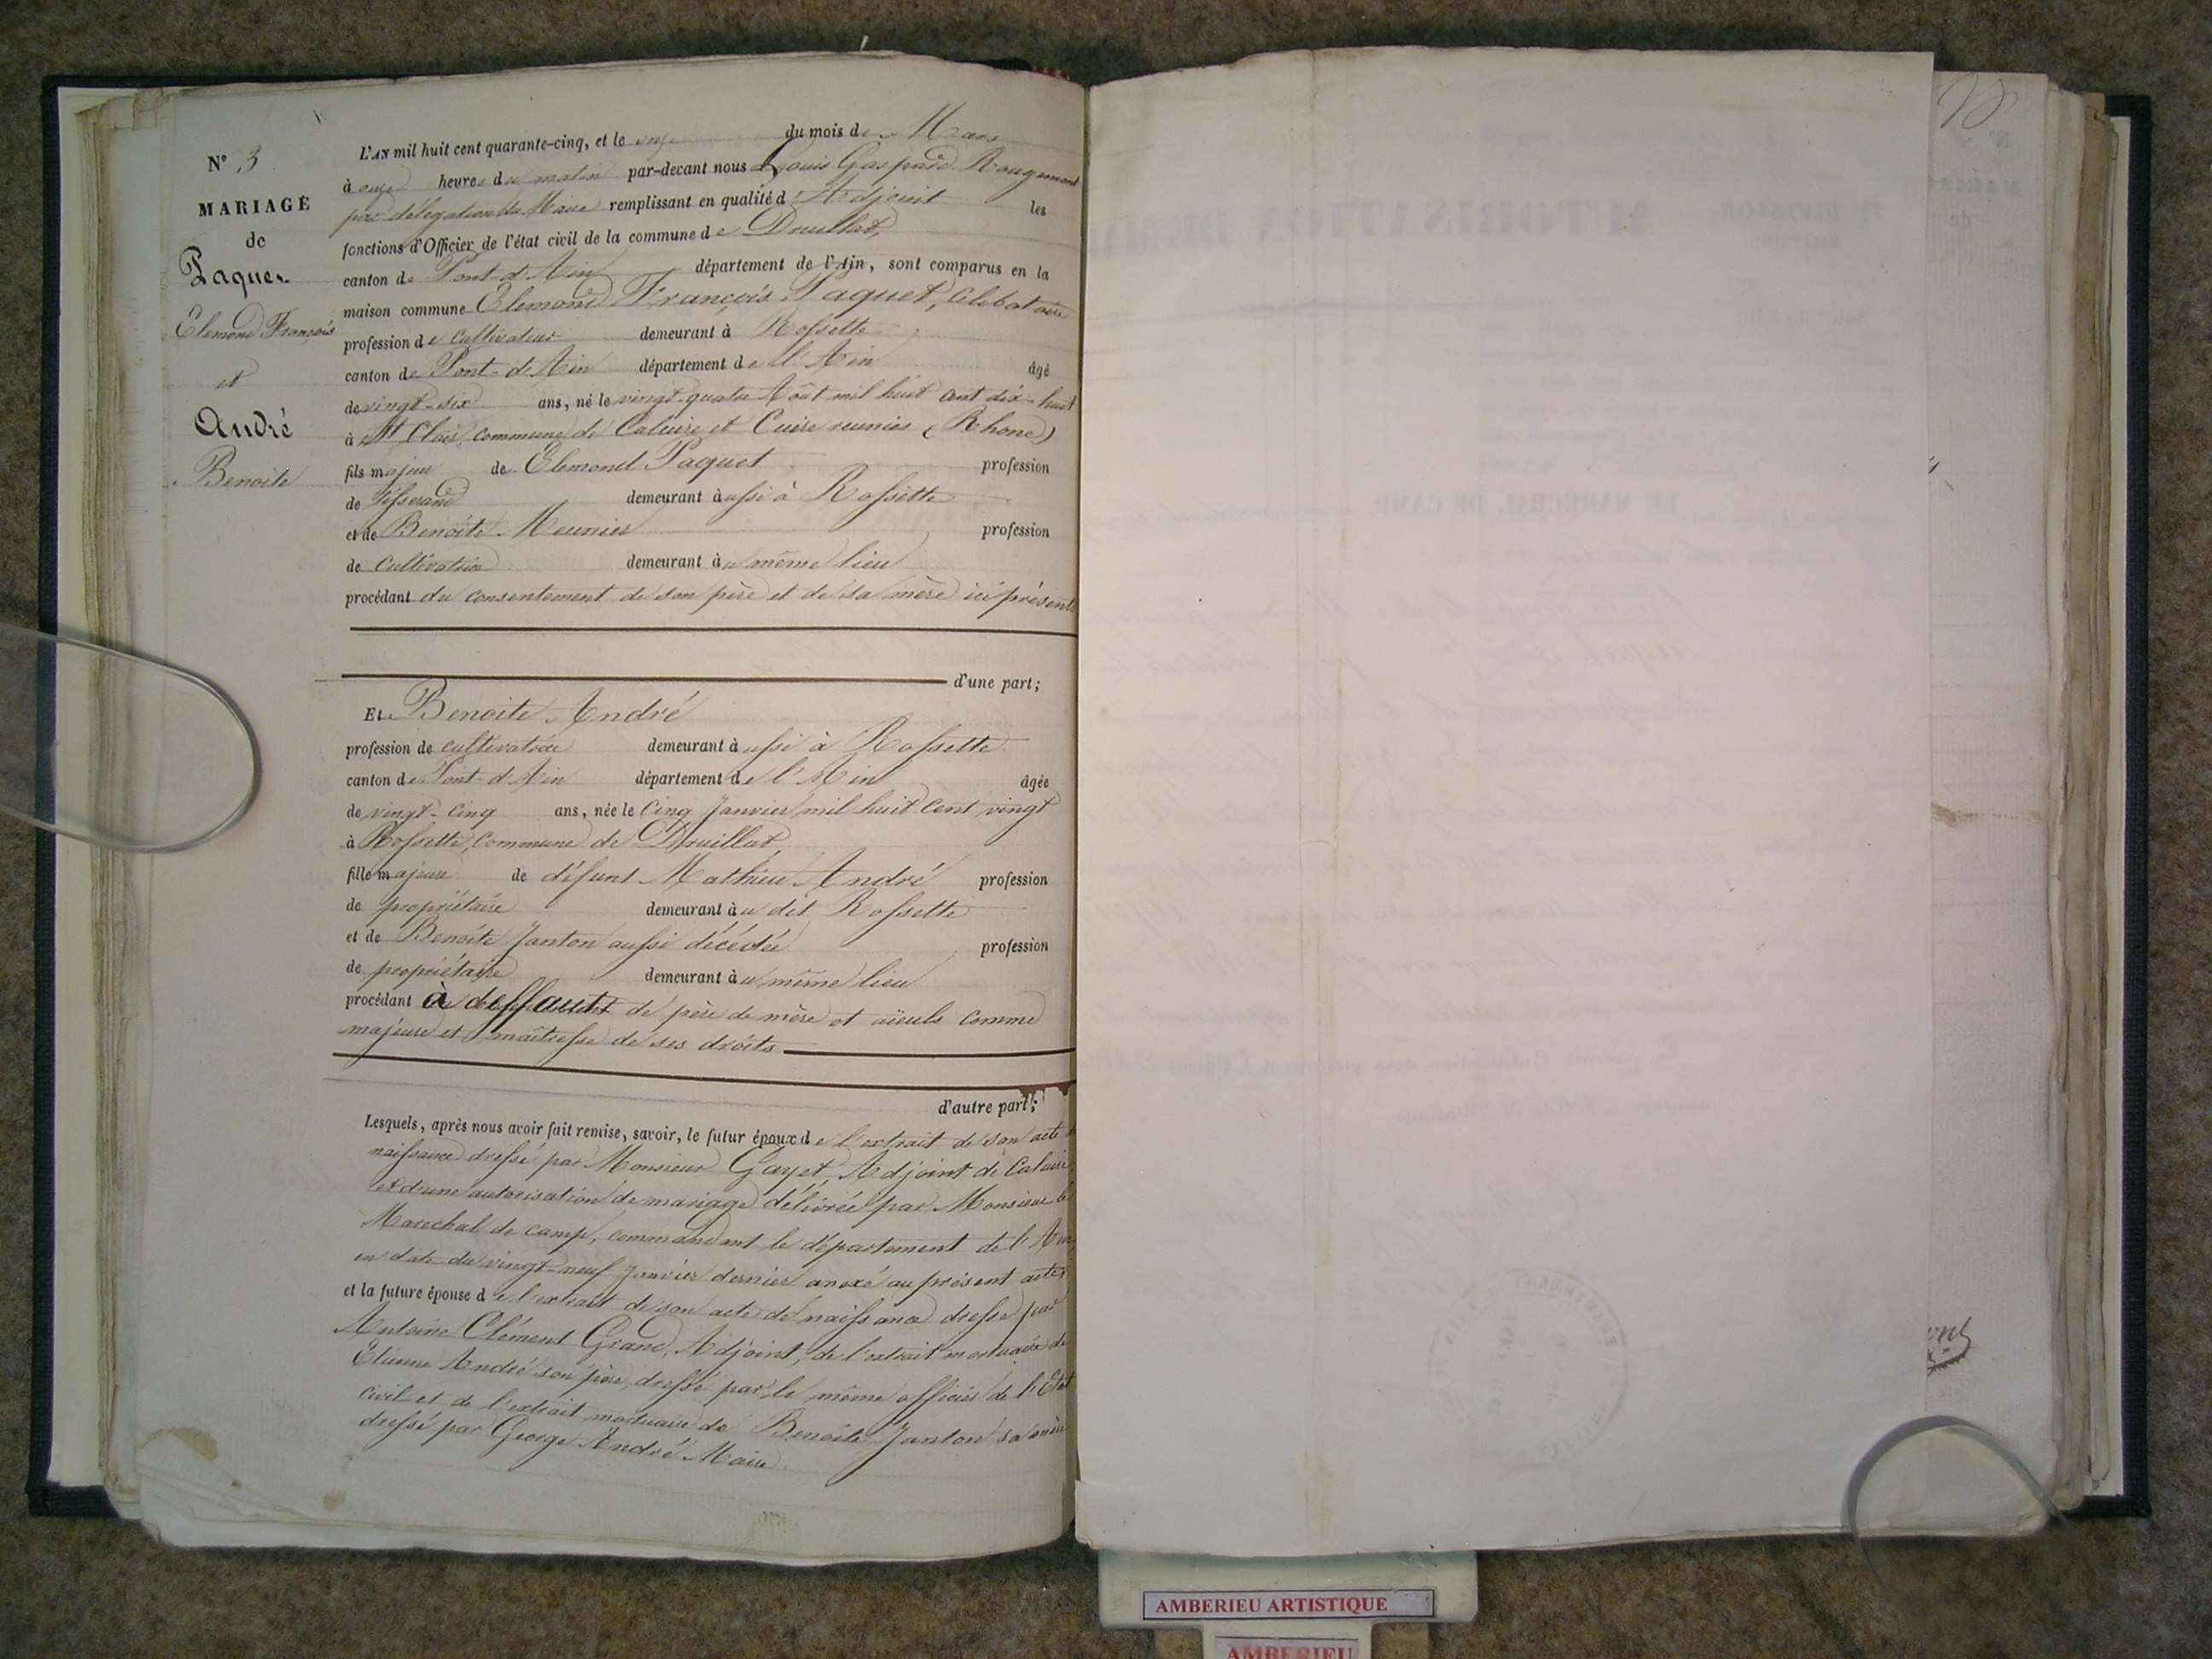 N° 3
MARIAGE
de
Paquet
Elemond François
et
André
Benoite
L'AN mil huit cent quarante-cinq, et le onze du mois de Mars
à onze heures du matin par-devant nous Louis Gaspard Rougemont
par délégation du Maire remplissant en qualité d'Adjoint les
fonctions d'Officier de l'état civil de la commune de Druillat,
canton de Pont-d'Ain département de l'Ain, sont comparus en la
maison commune Elemond François Paquet, celebataire
profession de cultivateur demeurant à Rossette
canton de Pont-d'Ain département de l'Ain âgé
de vingt-six ans, né le vingt-quatre Août mil huit cent dix-huit
à St Clair, commune de Caluire et Cuire reunies (Rhone)
fils majeur de Elemond Paquet profession
de Tisserand demeurant aussi à Rossette
et de Benoite Meunier profession
de Cultivatrice demeurant au même lieu
procédant du consentement de son père et de sa mère ici présents
d'une part;
Et Benoite André
profession de cultivatrice demeurant aussi à Rossette
canton de Pont-d'Ain département de l'Ain âgée
de vingt-cinq ans, née le Cinq Janvier mil huit cent vingt
à Rossette, commune de Druillat,
fille majeure de défunt Mathieu André profession
de propriétaire demeurant au dit Rossette
et de Benoite Janton aussi décédée profession
de propriétaire demeurant au même lieu
procédant à deffaut de père de mère et aïeuls comme
majeure et maîtresse de ses droits
d'autre part;
Lesquels, après nous avoir fait remise, savoir, le futur époux de l'extrait de son acte de
naissance dressé par Monsieur Gayet, Adjoint de Caluire,
et d'une autorisation de mariage délivrée par Monsieur le
Marechal de camp, commandant le département de l'Ain,
en date du vingt-neuf Janvier dernier anexé au présent acte,
et la future épouse de l'extrait de son acte de naissance dressé par
Antoine Clément Grand, Adjoint, de l'extrait mortuaire de
Etienne André son père, dressé par le même officier de l'Etat
civil et de l'extrait mortuaire de Benoite Janton sa mère
dressé par George André Maire.
AMBERIEU ARTISTIQUE
AMBERIEU